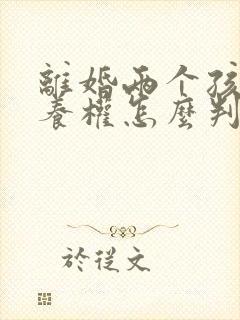 離婚兩个孩
養權怎麼判
於從文